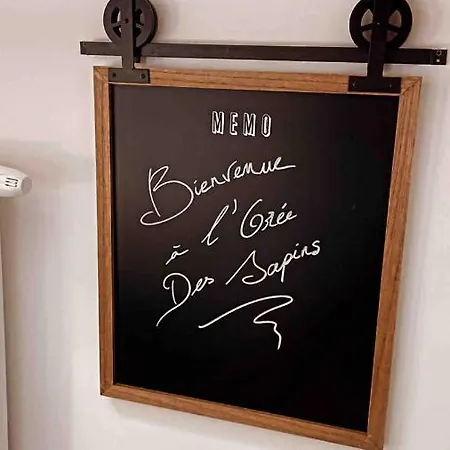 MEMO
Bienvenue
à l'Orée
Des Sapins